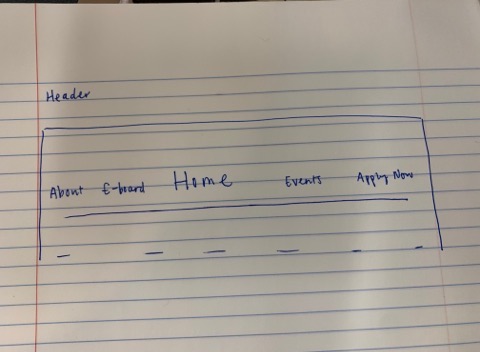 Header
About E-board Home Events Apply Now